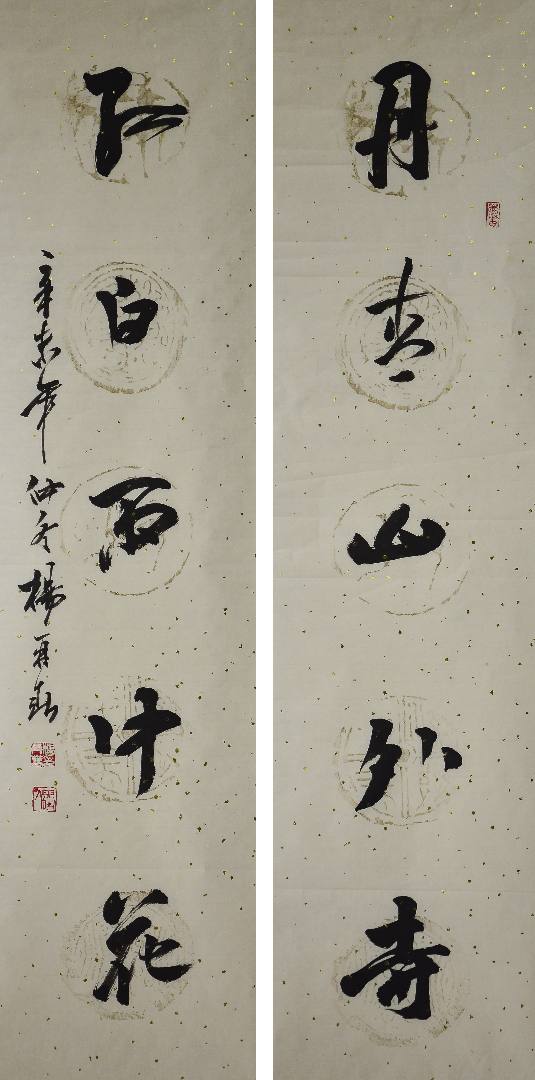 丹青山外寺
紅白雨中花
辛未年仲冬楊再春